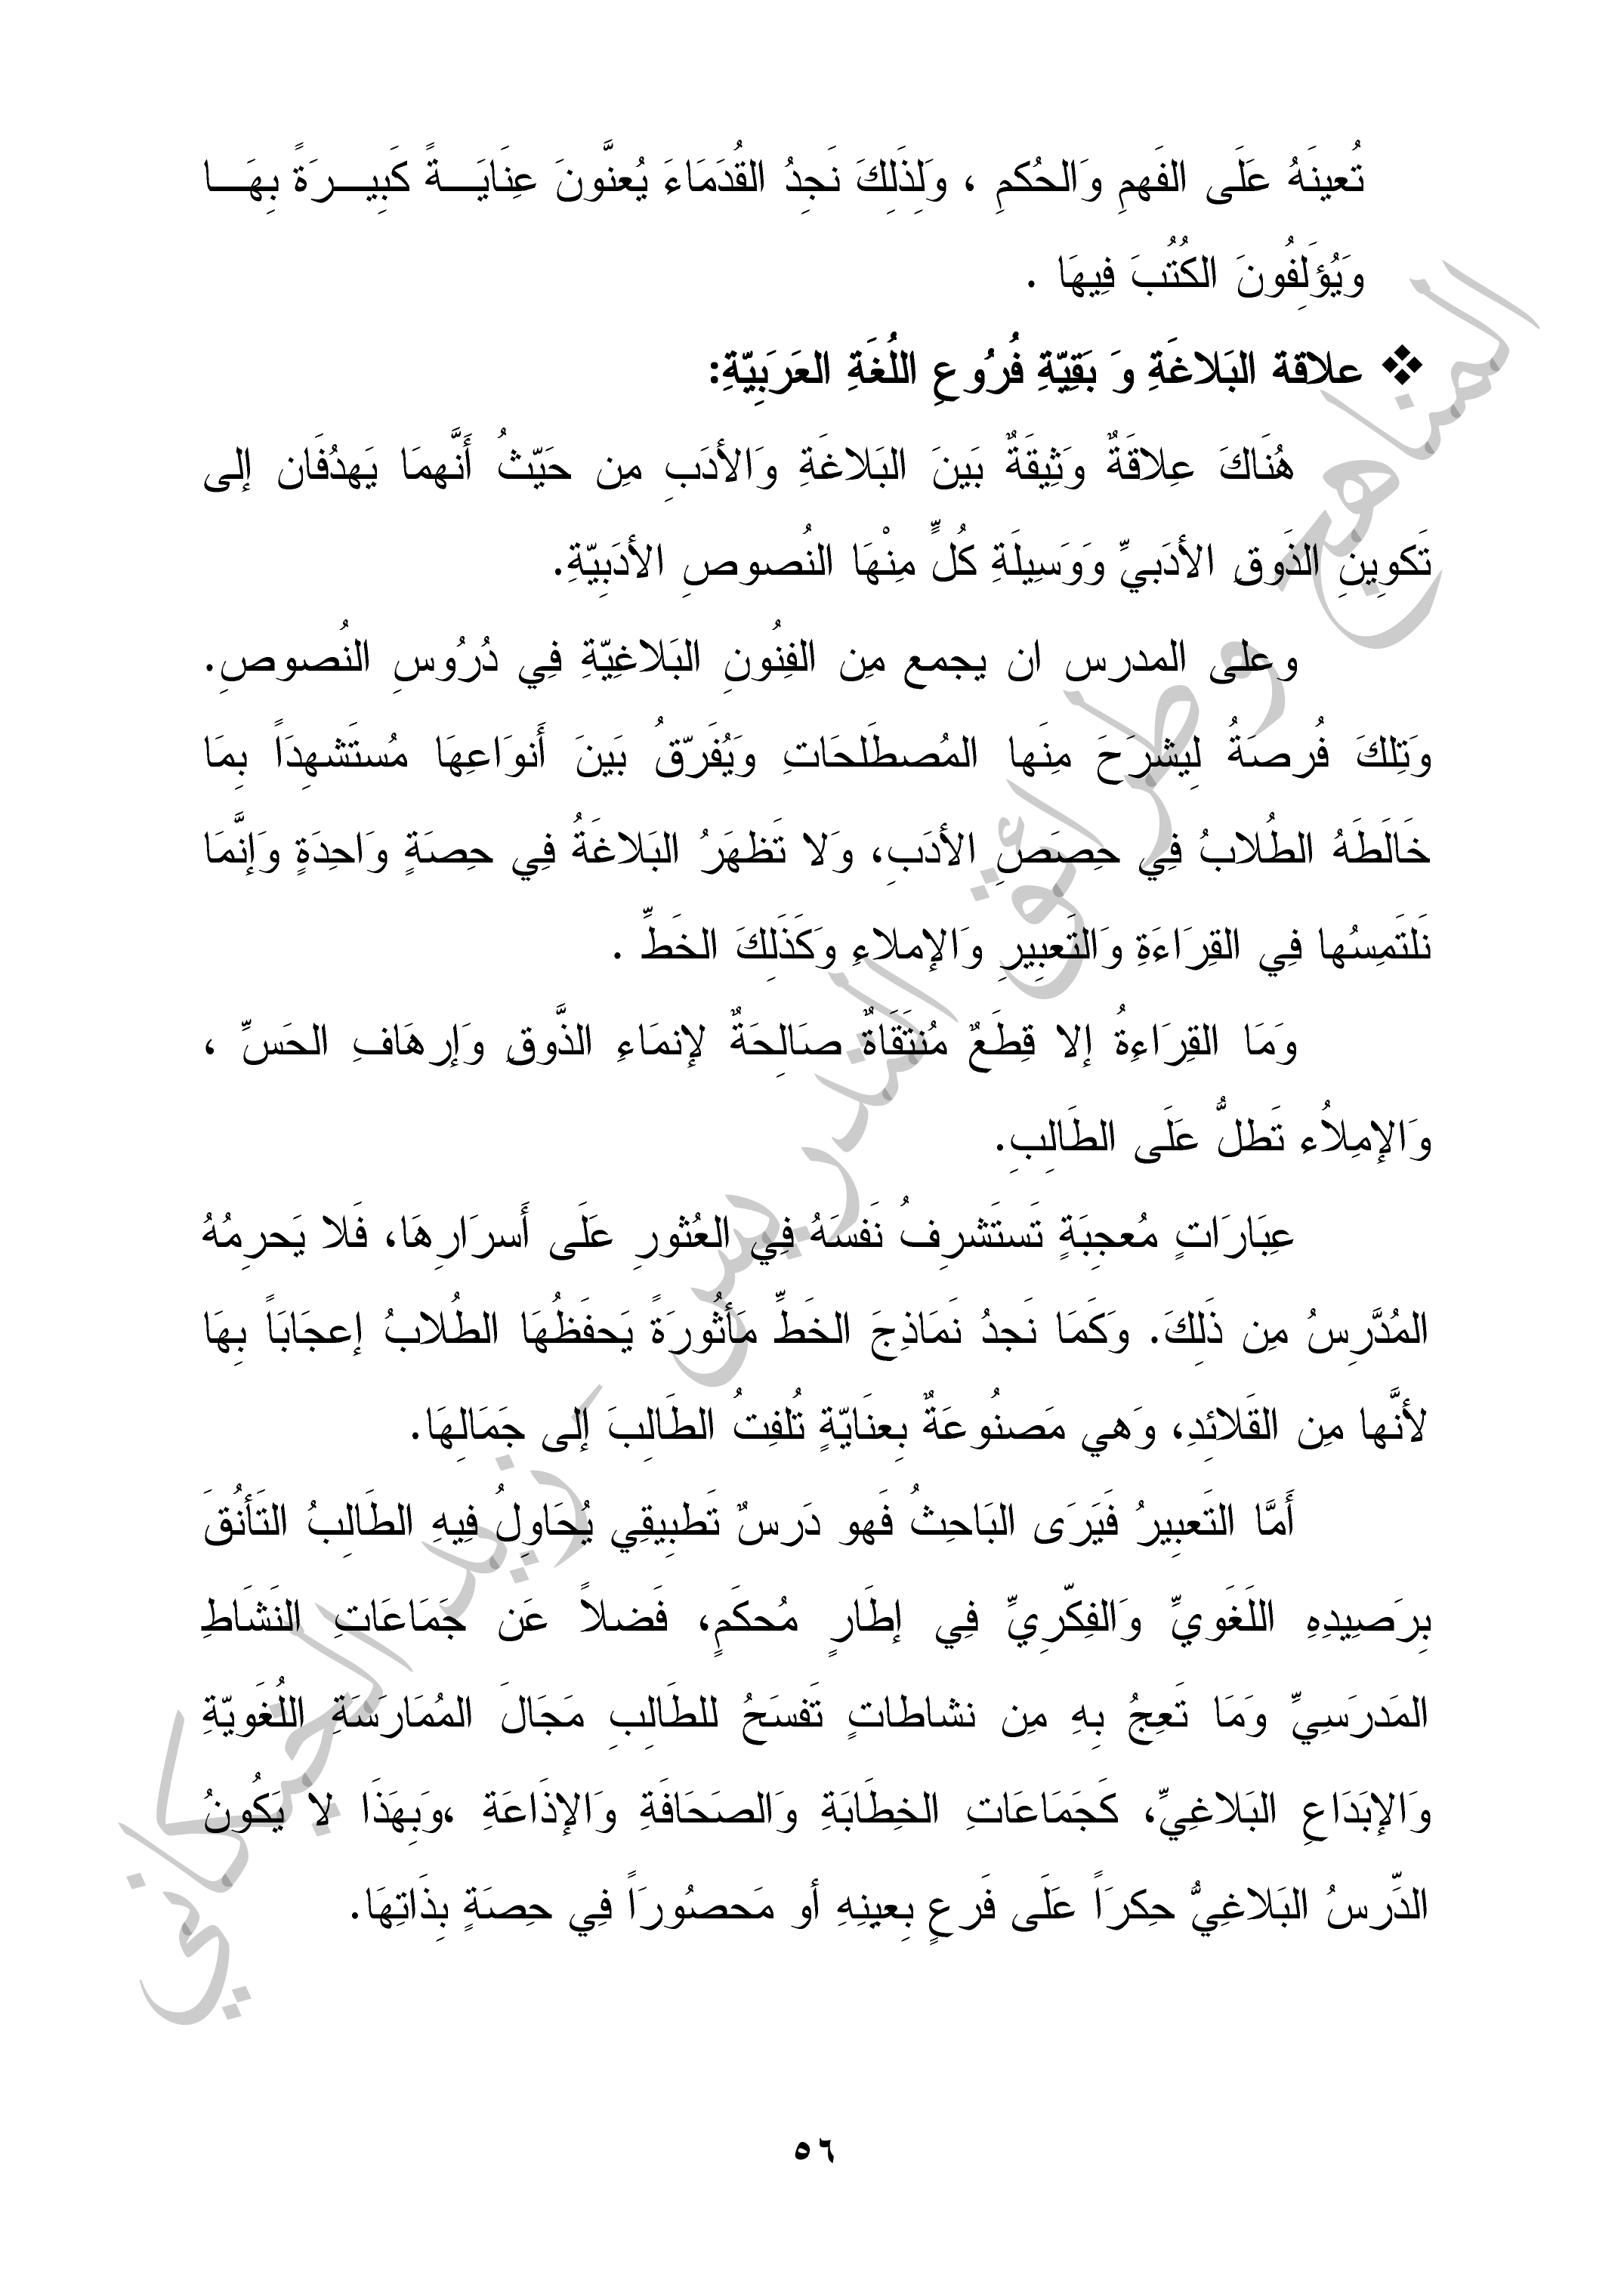 تُعينَهُ عَلَى الفَهمِ وَالحُكمِ ، وَلِذَلِكَ نَجِدُ القُدَمَاءَ يُعنَّونَ عِنَايَـــةً كَبِيـــرَةً بِهَـــا
وَيُؤَلِفُونَ الكُتُبَ فِيهَا .
❖ علاقة البَلاغَةِ وَ بَقِيّةِ فُرُوعِ اللُغَةِ العَرَبِيّةِ:
هُنَاكَ عِلاقَةٌ وَثِيقَةٌ بَينَ البَلاغَةِ وَالأدَبِ مِن حَيّثُ أَنَّهمَا يَهدُفَان إلى
تَكوِينِ الذَوقِ الأدَبيِّ وَوَسِيلَةِ كُلٍّ مِنْهَا النُصوصِ الأدَبِيّةِ.
وعلى المدرس ان يجمع مِن الفِنُونِ البَلاغِيّةِ فِي دُرُوسِ النُصوصِ.
وَتِلكَ فُرصَةُ لِيشرَحَ مِنَها المُصطَلَحَاتِ وَيُفَرّقُ بَينَ أَنوَاعِهَا مُستَشهِدَاً بِمَا
خَالَطَهُ الطُلابُ فِي حِصَصِ الأدَبِ، وَلا تَظهَرُ البَلاغَةُ فِي حِصَةٍ وَاحِدَةٍ وَإنَّمَا
نَلتَمِسُها فِي القِرَاءَةِ وَالتَعبِيرِ وَالإملاءِ وَكَذَلِكَ الخَطِّ .
وَمَا القِرَاءِةُ إلا قِطَعٌ مُنتَقَاةٌ صَالِحَةٌ لإنمَاءِ الذَّوقِ وَإرهَافِ الحَسِّ ،
وَالإمِلاُء تَطلُّ عَلَى الطَالِبِ.
عِبَارَاتٍ مُعجِبَةٍ تَستَشرِفُ نَفسَهُ فِي العُثورِ عَلَى أَسرَارِهَا، فَلا يَحرِمُهُ
المُدَّرِسُ مِن ذَلِكَ. وَكَمَا نَجدُ نَمَاذِجَ الخَطِّ مَأثُورَةً يَحفَظُهَا الطُلابُ إعجَابَاً بِهَا
لأنَّها مِن القَلائِدِ، وَهي مَصنُوعَةٌ بِعنَايّةٍ تُلفِتُ الطَالِبَ إلى جَمَالِهَا.
أَمَّا التَعبِيرُ فَيَرَى البَاحِثُ فَهو دَرسٌ تَطبِيقِي يُحَاوِلُ فِيهِ الطَالِبُ التَأنُقَ
بِرَصِيدِهِ اللَغَويِّ وَالفِكّرِيِّ فِي إطَارٍ مُحكَمٍ، فَضلاً عَن جَمَاعَاتِ النَشَاطِ
المَدرَسِيِّ وَمَا تَعِجُ بِهِ مِن نشاطاتٍ تَفسَحُ للطَالِبِ مَجَالَ المُمَارَسَةِ اللُغَويّةِ
وَالإبَدَاعِ البَلاغِيِّ، كَجَمَاعَاتِ الخِطَابَةِ وَالصَحَافَةِ وَالإذَاعَةِ ،وَبِهَذَا لا يَكُونُ
الدَّرسُ البَلاغِيُّ حِكرَاً عَلَى فَرعٍ بِعينِهِ أو مَحصُورَاً فِي حِصَةٍ بِذَاتِهَا.
٥٦
المناهج وطرائق التدريس – زيد الخيكاني